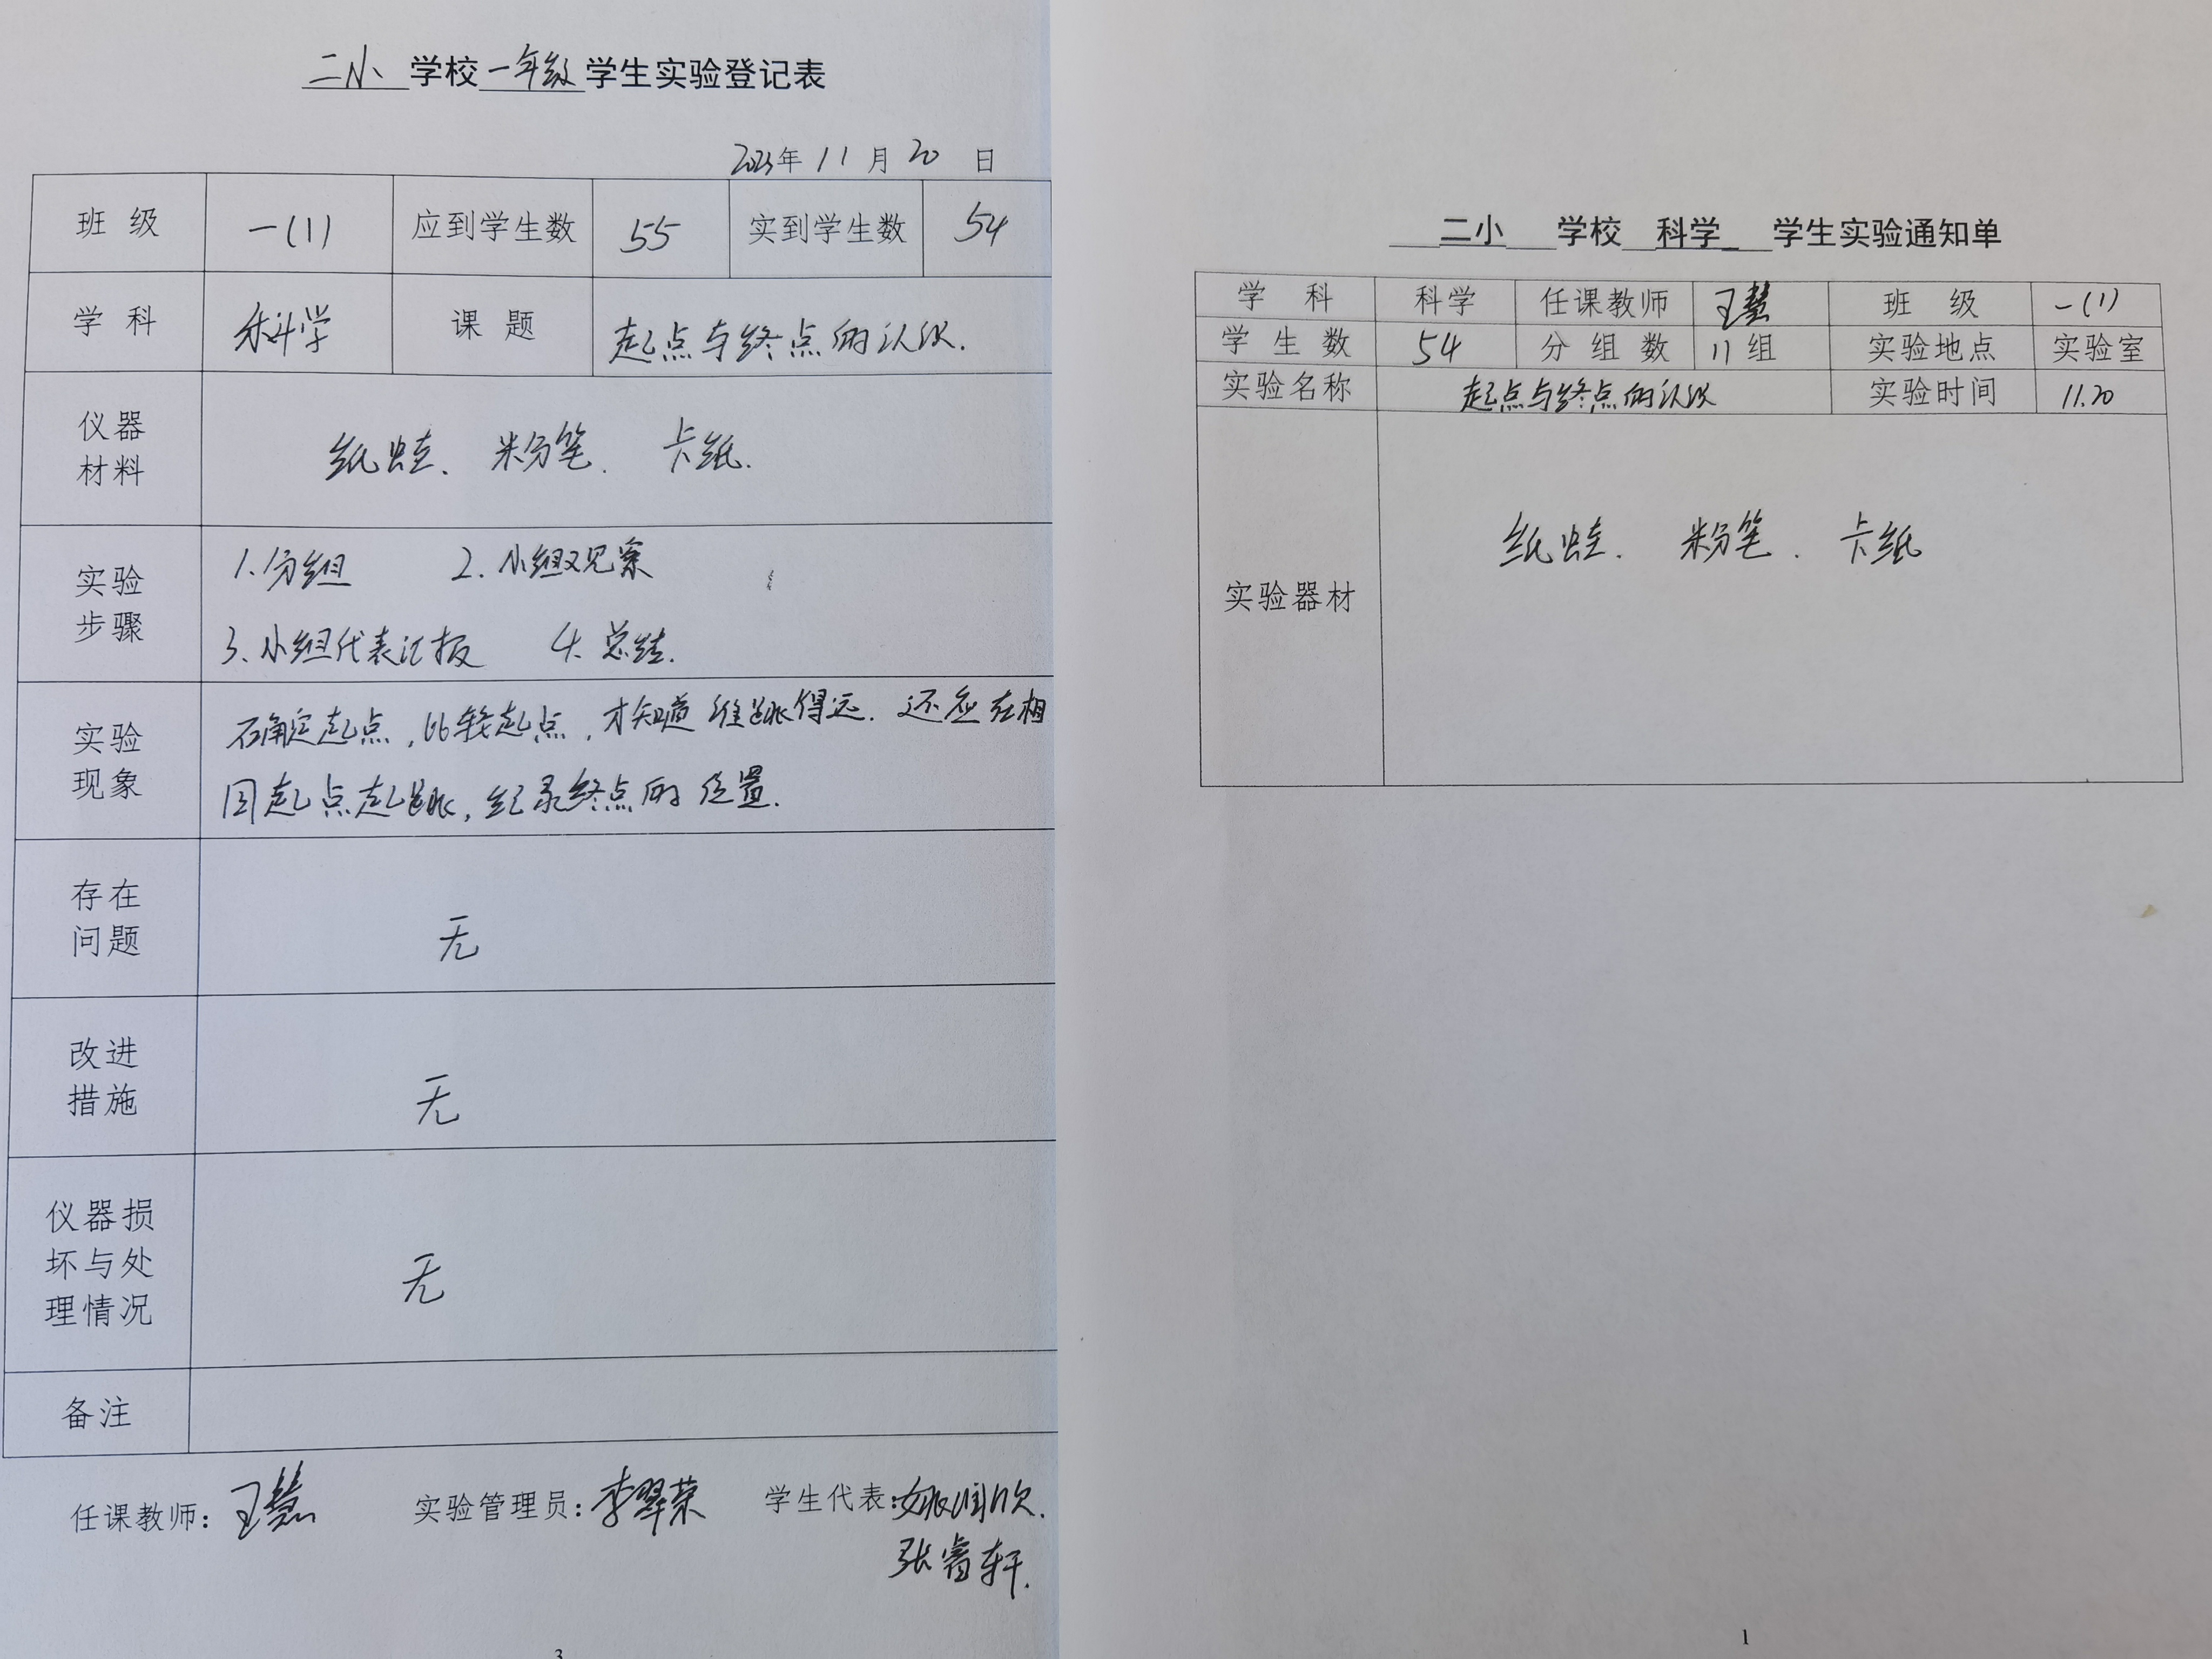 二小 学校 一年级 学生实验登记表
2023年 11 月 20 日
班 级 一(1) 应到学生数 55 实到学生数 54
学 科 科学 课 题 起点与终点的认识.
仪器
材料
纸蛙、 粉笔、 卡纸.
实验
步骤
1.分组 2.小组观察
3.小组代表汇报 4.总结.
实验
现象
确定起点,比较起点,才知道谁跳得远.还应在相
同起点起跳,纪录终点的位置.
存在
问题
无
改进
措施
无
仪器损
坏与处
理情况
无
备注
任课教师: 王慧 实验管理员: 李翠荣 学生代表: 欣.
张睿轩.
3
二小 学校 科学 学生实验通知单
学 科 科学 任课教师 王慧 班 级 一(1)
学 生 数 54 分 组 数 11组 实验地点 实验室
实验名称 起点与终点的认识 实验时间 11.20
实验器材
纸蛙. 粉笔. 卡纸
1